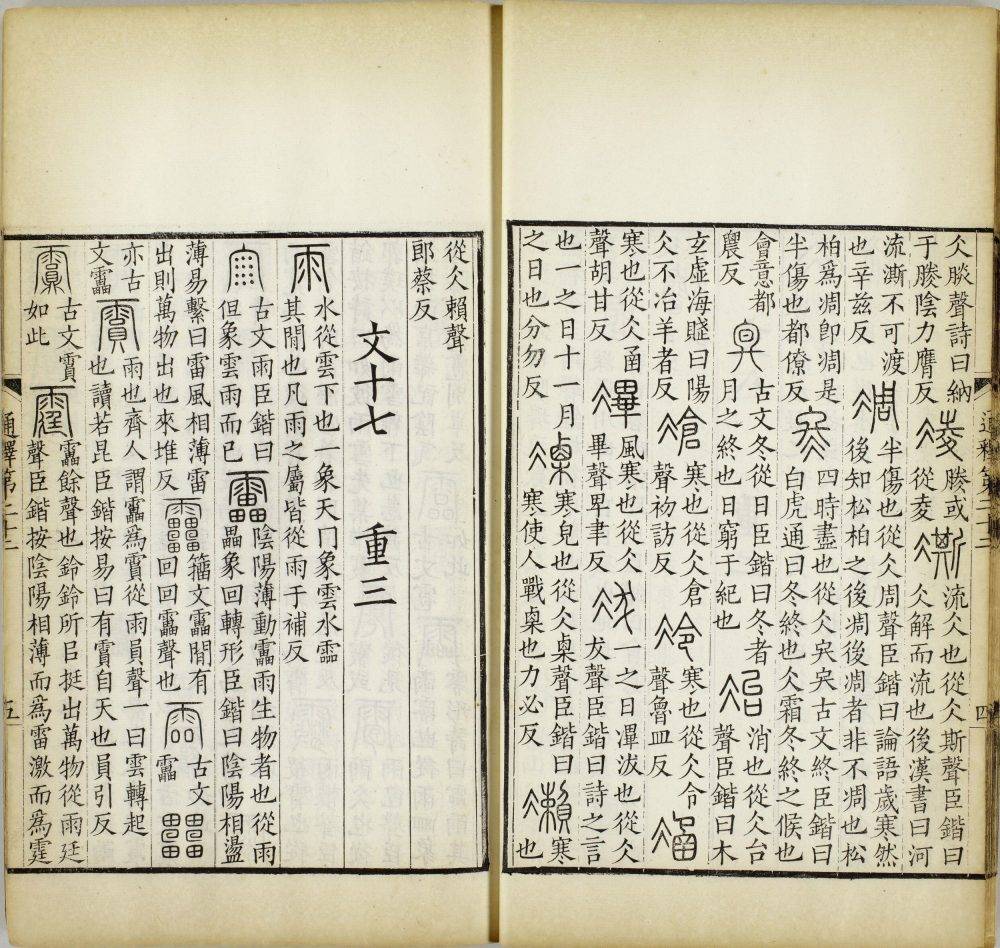 仌朕聲詩曰納于朕陰力膺反 𣨛 勝或從夌 澌 流仌也從仌斯聲臣鍇曰仌解而流也後漢書曰河
流澌不可渡也辛兹反 凋 半傷也從仌周聲臣鍇曰論語歲寒然後知松柏之後凋後凋者非不凋也松
柏爲凋卽凋是半傷也都僚反 冬 四時盡也從仌㚵㚵古文終臣鍇曰白虎通曰冬終也仌霜冬終之候也
會意都農反 古文冬從日臣鍇曰冬者月之終也日窮于紀也 冶 消也從仌台聲臣鍇曰木
玄虛海賦曰陽仌不冶羊者反 凔 寒也從仌倉聲礽訪反 冷 寒也從仌令聲魯皿反 涵
寒也從仌函聲胡甘反 滭 風寒也從仌畢聲畀聿反 冹 一之日滭冹也從仌犮聲臣鍇曰詩之言
也一之日十一月之日也分勿反 凓 寒皃也從仌㮚聲臣鍇曰寒使人戰㮚也力必反 瀨 寒也
通釋第二十二 四
從仌賴聲郎蔡反
文十七 重三
雨 水從雲下也一象天冂象雲水霝其閒也凡雨之屬皆從雨于補反
古文雨臣鍇曰但象雲雨而已 靁 陰陽薄動靁雨生物者也從雨畾象回轉形臣鍇曰陰陽相盪
薄易繫曰雷風相薄雷出則萬物出也來堆反 籒文靁閒有回回靁聲也 古文靁
亦古文靁 霣 雨也齊人謂靁爲霣從雨員聲一曰雲轉起也讀若昆臣鍇按易曰有霣自天也員引反
古文霣如此 霆 靁餘聲也鈴鈴所㠯挺出萬物從雨廷聲臣鍇按陰陽相薄而爲雷激而爲霆
通釋第二十二 五